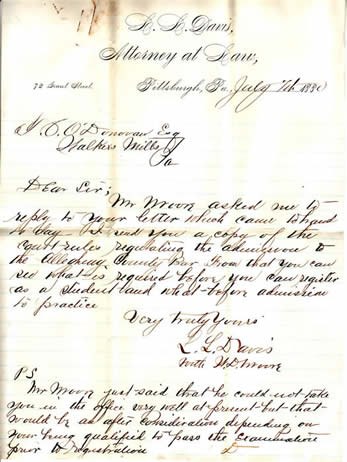 L. L. Davis,
Attorney at Law,
72 Grant Street
Pittsburgh, Pa., July 7th 1880
O'Donovan Esq
Walkers Mills
Pa
Dear Sir;
Mr Moon asked me to
reply to your letter which came to hand
to day I send you a copy of the
court rules regulating the admission to
the Allegheny County Bar From that you can
see what is required before you can register
as a student and what before admission
to practice
Very truly Yours
L. L. Davis
with W.D. Moon
PS
Mr Moon just said that he could not take
you in the office very well at present but that
would be an after consideration depending on
your being qualified to pass the examination
prior to registration D